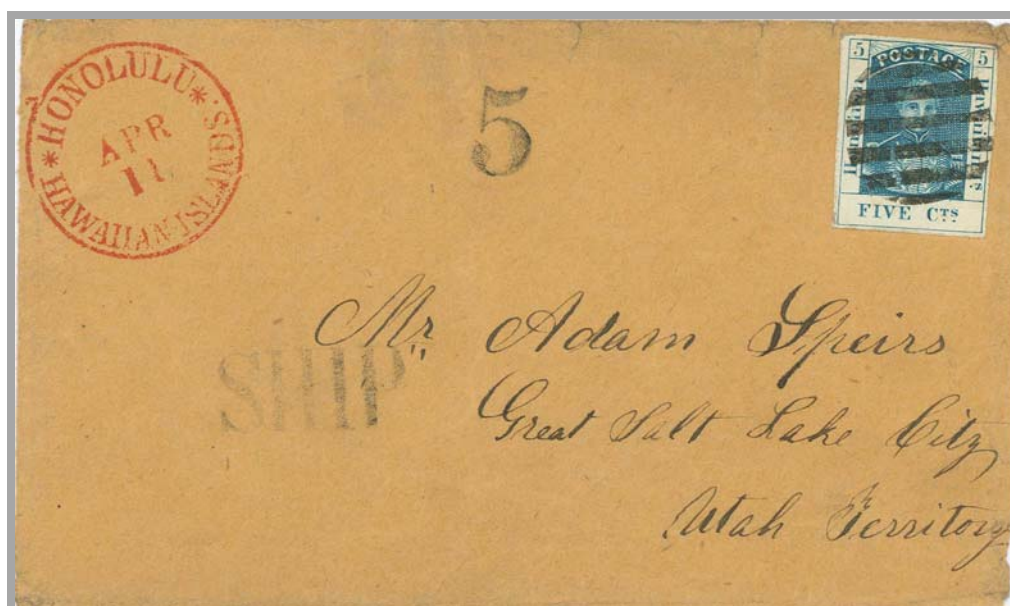 *HONOLULU*
APR
11
HAWAIIAN-ISLANDS.
5
5 POSTAGE 5
FIVE CTS
Mr Adam Speirs
SHIP
Great Salt Lake City
Utah Territory